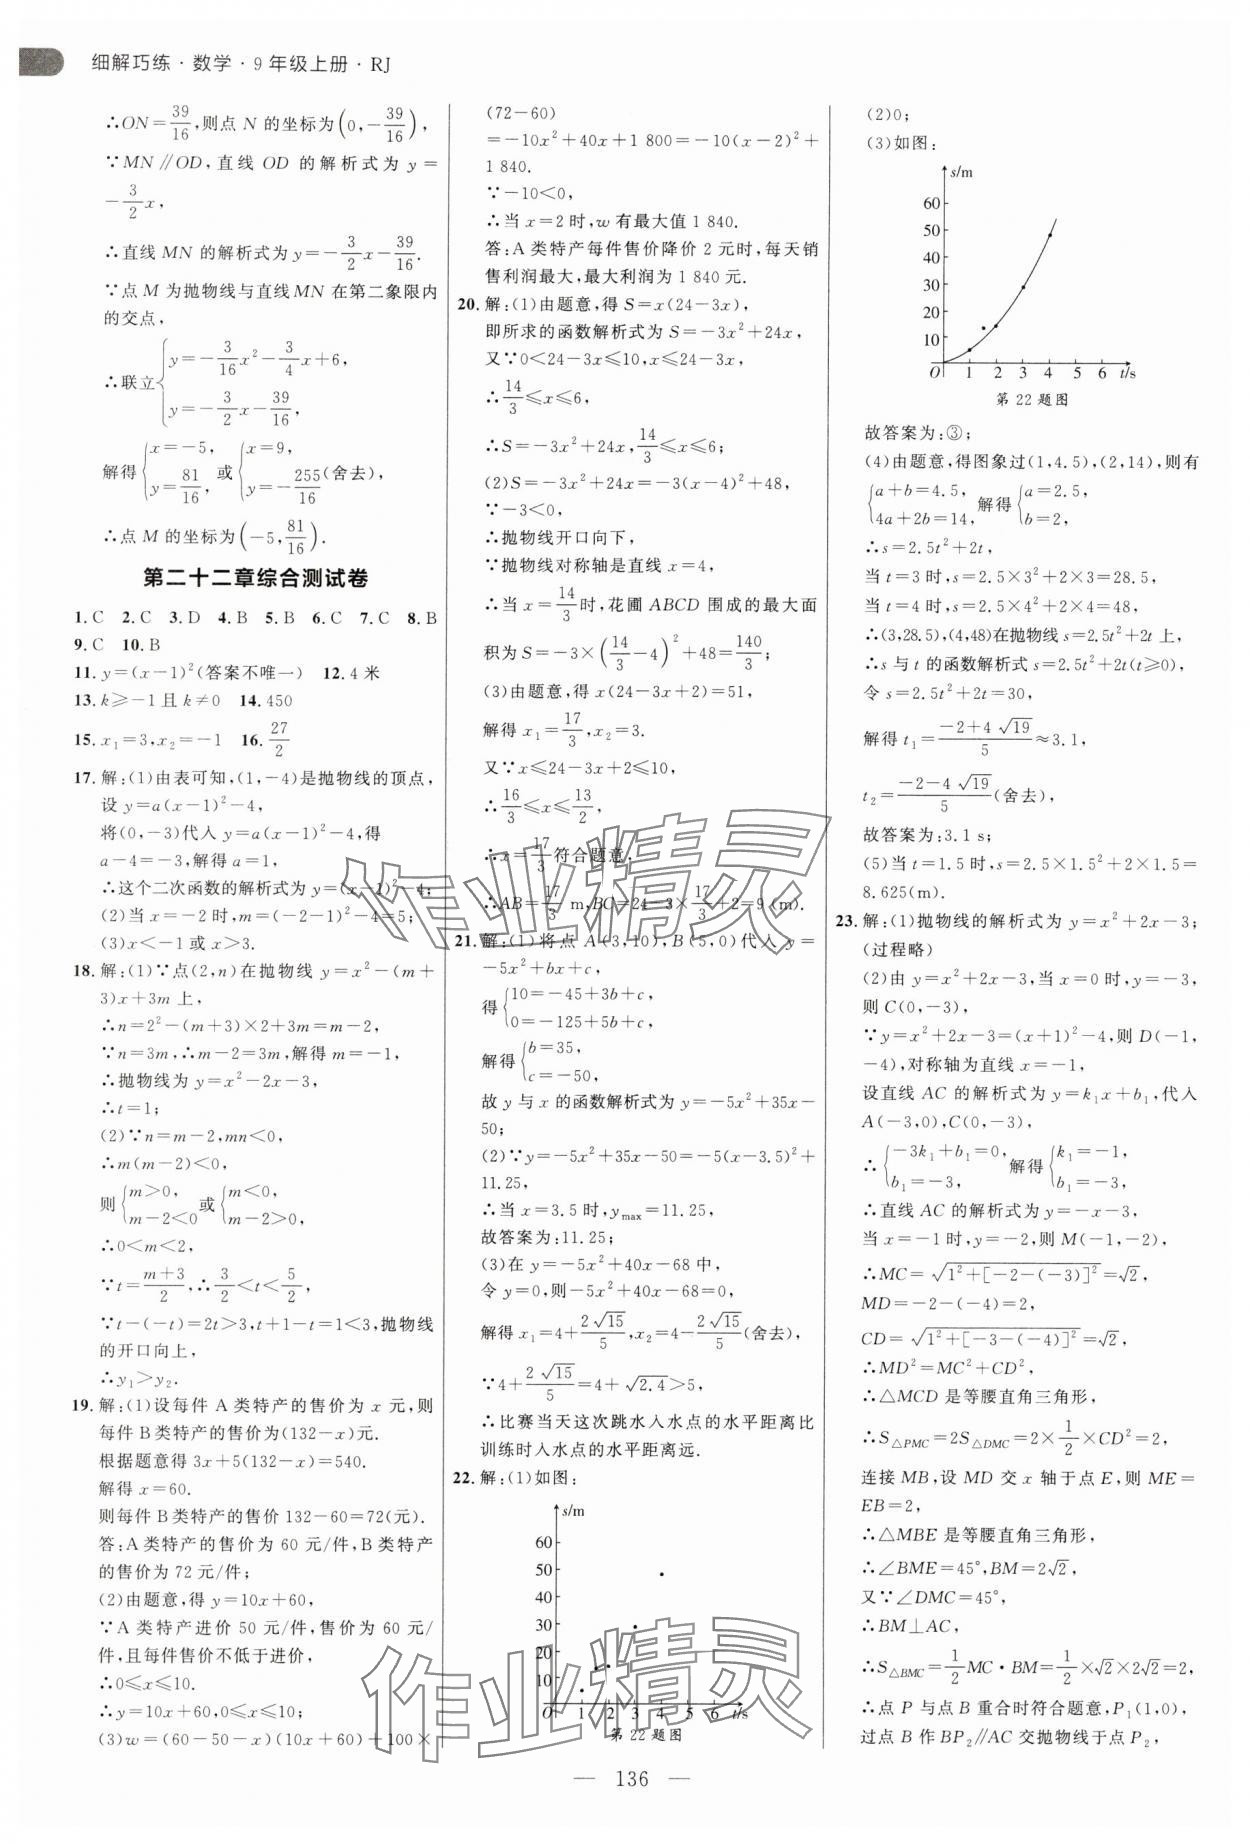 细解巧练·数学·9年级上册·RJ
∴ON=39/16,则点 N 的坐标为(0,-39/16),
∵MN∥OD,直线 OD 的解析式为 y=
-3/2x,
∴直线 MN 的解析式为 y=-3/2x-39/16.
∵点 M 为抛物线与直线MN 在第二象限内
的交点,
∴联立{y=-3/16x²-3/4x+6,
y=-3/2x-39/16,
解得{x=-5, y=81/16, 或{x=9, y=-255/16(舍去),
∴点 M 的坐标为(-5,81/16).
第二十二章综合测试卷
1.C 2.C 3.D 4.B 5.B 6.C 7.C 8.B
9.C 10.B
11.y=(x-1)²(答案不唯一) 12.4米
13.k≥-1且 k≠0 14.450
15.x₁=3,x₂=-1 16.27/2
17.解:(1)由表可知,(1,-4)是抛物线的顶点,
设 y=a(x-1)²-4,
将(0,-3)代入 y=a(x-1)²-4,得
a-4=-3,解得 a=1,
∴这个二次函数的解析式为 y=(x-1)²-4;
(2)当 x=-2时,m=(-2-1)²-4=5;
(3)x<-1或 x>3.
18.解:(1)∵点(2,n)在抛物线 y=x²-(m+
3)x+3m 上,
∴n=2²-(m+3)×2+3m=m-2,
∵n=3m,∴m-2=3m,解得 m=-1,
∴抛物线为 y=x²-2x-3,
∴t=1;
(2)∵n=m-2,mn<0,
∴m(m-2)<0,
则{m>0, m-2<0 或{m<0, m-2>0,
∴0<m<2,
∵t=m+3/2,∴3/2<t<5/2,
∵t-(-t)=2t>3,t+1-t=1<3,抛物线
的开口向上,
∴y₁>y₂.
19.解:(1)设每件 A 类特产的售价为 x 元,则
每件 B类特产的售价为(132-x)元.
根据题意得 3x+5(132-x)=540.
解得 x=60.
则每件 B类特产的售价 132-60=72(元).
答:A 类特产的售价为 60 元/件,B类特产
的售价为 72 元/件;
(2)由题意,得 y=10x+60,
∵A 类特产进价 50 元/件,售价为 60 元/
件,且每件售价不低于进价,
∴0≤x≤10.
∴y=10x+60,0≤x≤10;
(3)w=(60-50-x)(10x+60)+100×
(72-60)
=-10x²+40x+1 800=-10(x-2)²+
1 840.
∵-10<0,
∴当 x=2时,w 有最大值 1 840.
答:A 类特产每件售价降价 2 元时,每天销
售利润最大,最大利润为 1 840 元.
20.解:(1)由题意,得 S=x(24-3x),
即所求的函数解析式为 S=-3x²+24x,
又∵0<24-3x≤10,x≤24-3x,
∴14/3≤x≤6,
∴S=-3x²+24x,14/3≤x≤6;
(2)S=-3x²+24x=-3(x-4)²+48,
∵-3<0,
∴抛物线开口向下,
∵抛物线对称轴为直线 x=4,
∴当 x=14/3时,花圃 ABCD 围成的最大面
积为 S=-3×(14/3-4)²+48=140/3;
(3)由题意,得 x(24-3x+2)=51,
解得 x₁=17/3,x₂=3.
又∵x≤24-3x+2≤10,
∴16/3≤x≤13/2,
∴x=17/3符合题意.
∴AB=17/3 m,BC=24-3×17/3+2=9(m).
21.解:(1)将点 A(3,10),B(5,0)代入 y=
-5x²+bx+c,
得{10=-45+3b+c,
0=-125+5b+c,
解得{b=35,
c=-50,
故 y 与 x 的函数解析式为 y=-5x²+35x-
50;
(2)∵y=-5x²+35x-50=-5(x-3.5)²+
11.25,
∴当 x=3.5时,y max=11.25,
故答案为:11.25;
(3)在 y=-5x²+40x-68中,
令 y=0,则-5x²+40x-68=0,
解得 x₁=4+2√15/5,x₂=4-2√15/5(舍去),
∵4+2√15/5=4+√2.4>5,
∴比赛当天这次跳水入水点的水平距离比
训练时入水点的水平距离远.
22.解:(1)如图:
s/m
60
50
40
30
20
10
O 1 2 3 4 5 6 t/s
第 22 题图
(2)0;
(3)如图:
s/m
60
50
40
30
20
10
O 1 2 3 4 5 6 t/s
第 22 题图
故答案为:③;
(4)由题意,得图象过(1,4.5),(2,14),则有
{a+b=4.5, 4a+2b=14, 解得{a=2.5, b=2,
∴s=2.5t²+2t,
当 t=3时,s=2.5×3²+2×3=28.5,
当 t=4时,s=2.5×4²+2×4=48,
∴(3,28.5),(4,48)在抛物线 s=2.5t²+2t 上,
∴s 与 t 的函数解析式 s=2.5t²+2t(t≥0),
令 s=2.5t²+2t=30,
解得 t₁=-2+4√19/5≈3.1,
t₂=-2-4√19/5(舍去),
故答案为:3.1 s;
(5)当 t=1.5时,s=2.5×1.5²+2×1.5=
8.625(m).
23.解:(1)抛物线的解析式为 y=x²+2x-3;
(过程略)
(2)由 y=x²+2x-3,当 x=0时,y=-3,
则 C(0,-3),
∵y=x²+2x-3=(x+1)²-4,则 D(-1,
-4),对称轴为直线 x=-1,
设直线 AC 的解析式为 y=k₁x+b₁,代入
A(-3,0),C(0,-3),
∴{-3k₁+b₁=0, b₁=-3, 解得{k₁=-1, b₁=-3,
∴直线 AC 的解析式为 y=-x-3,
当 x=-1时,y=-2,则 M(-1,-2),
∴MC=√1²+[-2-(-3)]²=√2,
MD=-2-(-4)=2,
CD=√1²+[-3-(-4)]²=√2,
∴MD²=MC²+CD²,
∴△MCD 是等腰直角三角形,
∴S△PMC=2S△DMC=2×1/2×CD²=2,
连接 MB,设 MD 交 x 轴于点 E,则 ME=
EB=2,
∴△MBE 是等腰直角三角形,
∴∠BME=45°,BM=2√2,
又∵∠DMC=45°,
∴BM⊥AC,
∴S△BMC=1/2MC·BM=1/2×√2×2√2=2,
∴点 P 与点 B 重合时符合题意,P₁(1,0),
过点 B 作 BP₂∥AC 交抛物线于点 P₂,
作业精灵
作业精灵
— 136 —